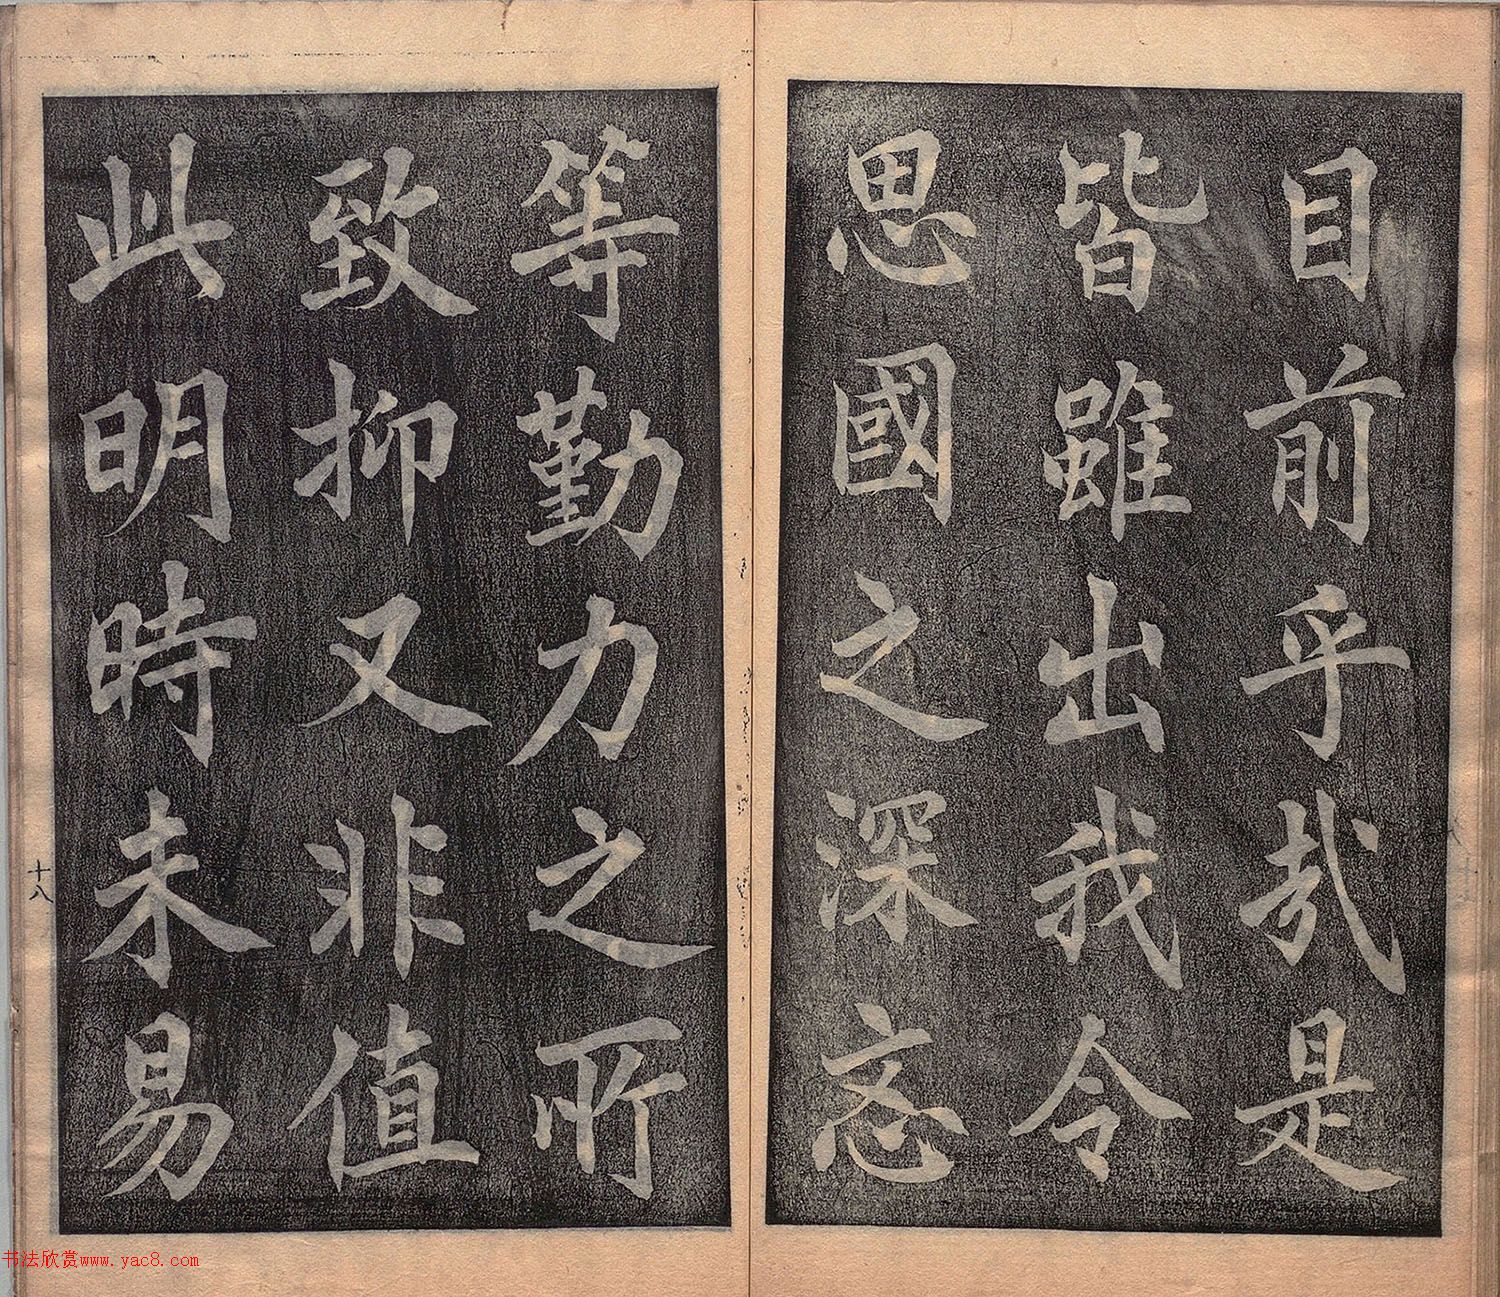 目前乎哉是
皆雖出我令
思國之深忞
等勤力之所
致抑又非值
此明時未易
十八
书法欣赏www.yac8.com